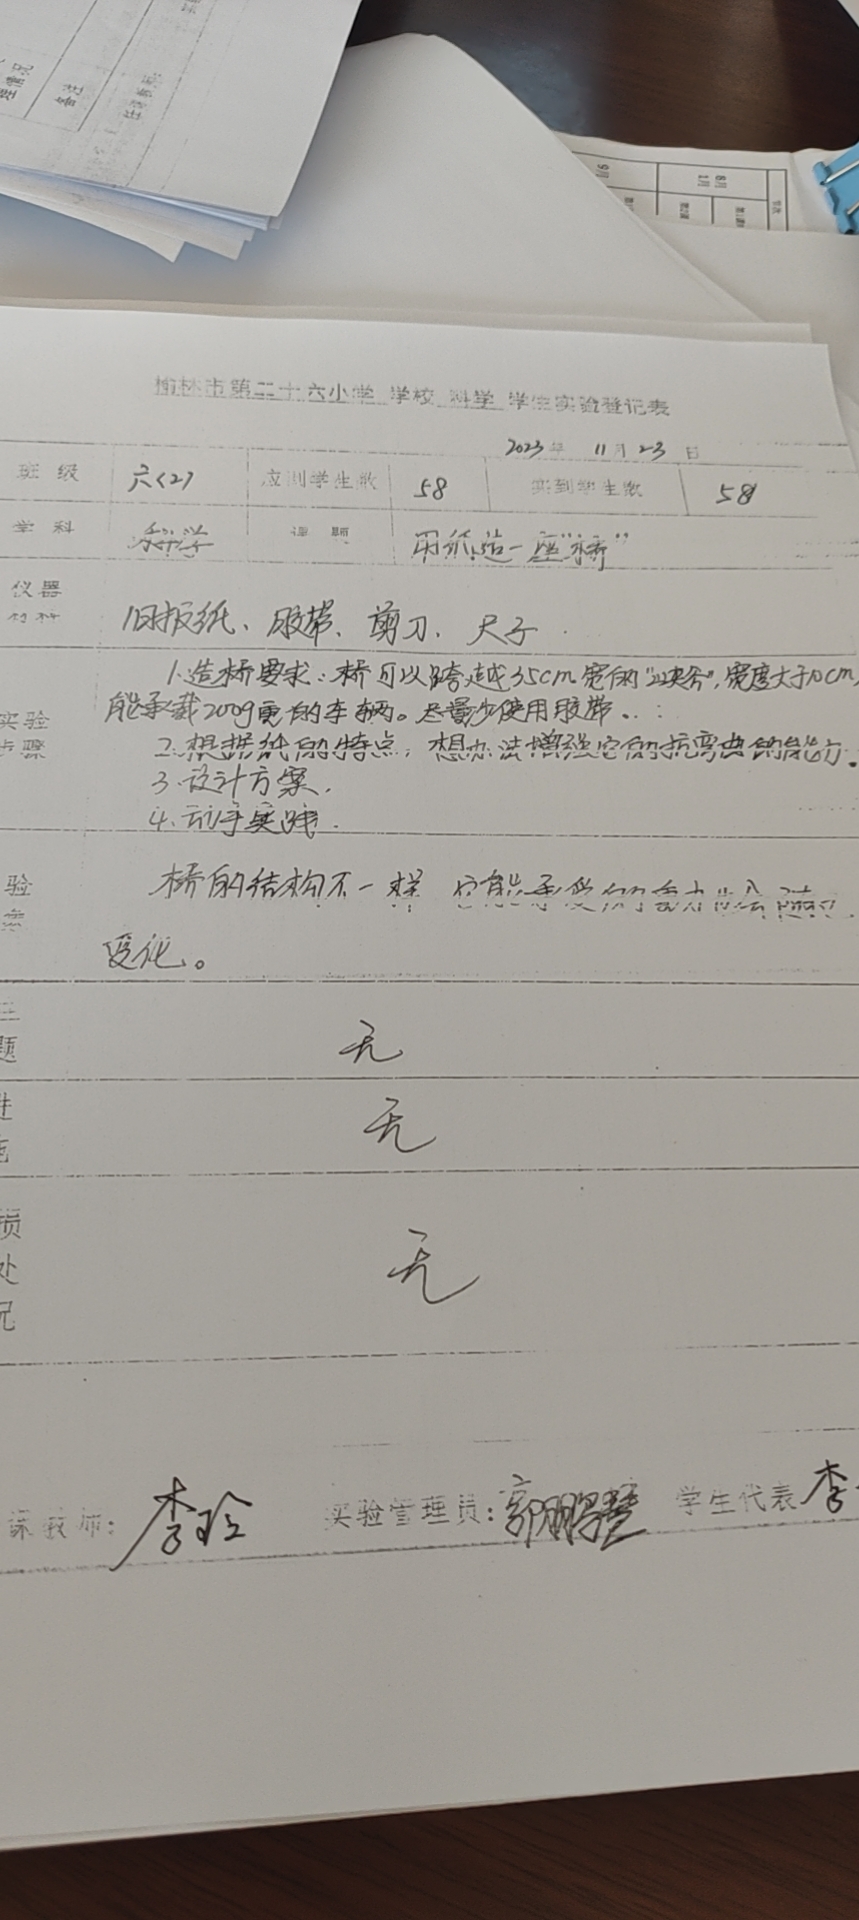 备注
榆林市第二十六小学 学校 科学 学生实验登记表
2023年 11月23日
班级 六(2) 应到学生数 58 实到学生数 58
学科 科学 课题 用纸造一座“桥”
仪器
材料
旧报纸、胶带、剪刀、尺子
1.造桥要求:桥可以跨越35cm宽的“峡谷”,宽度大于10cm,
能承载200g重的车辆。尽量少使用胶带。
实验
步骤
2.想据纸的特点,想办法增强它的抗弯曲的能力。
3.设计方案.
4.动手实践.
桥的结构不一样 它能承受的
变化。
验
题
无
无
损
处
况
无
课教师: 李玲 实验管理员: 学生代表 李